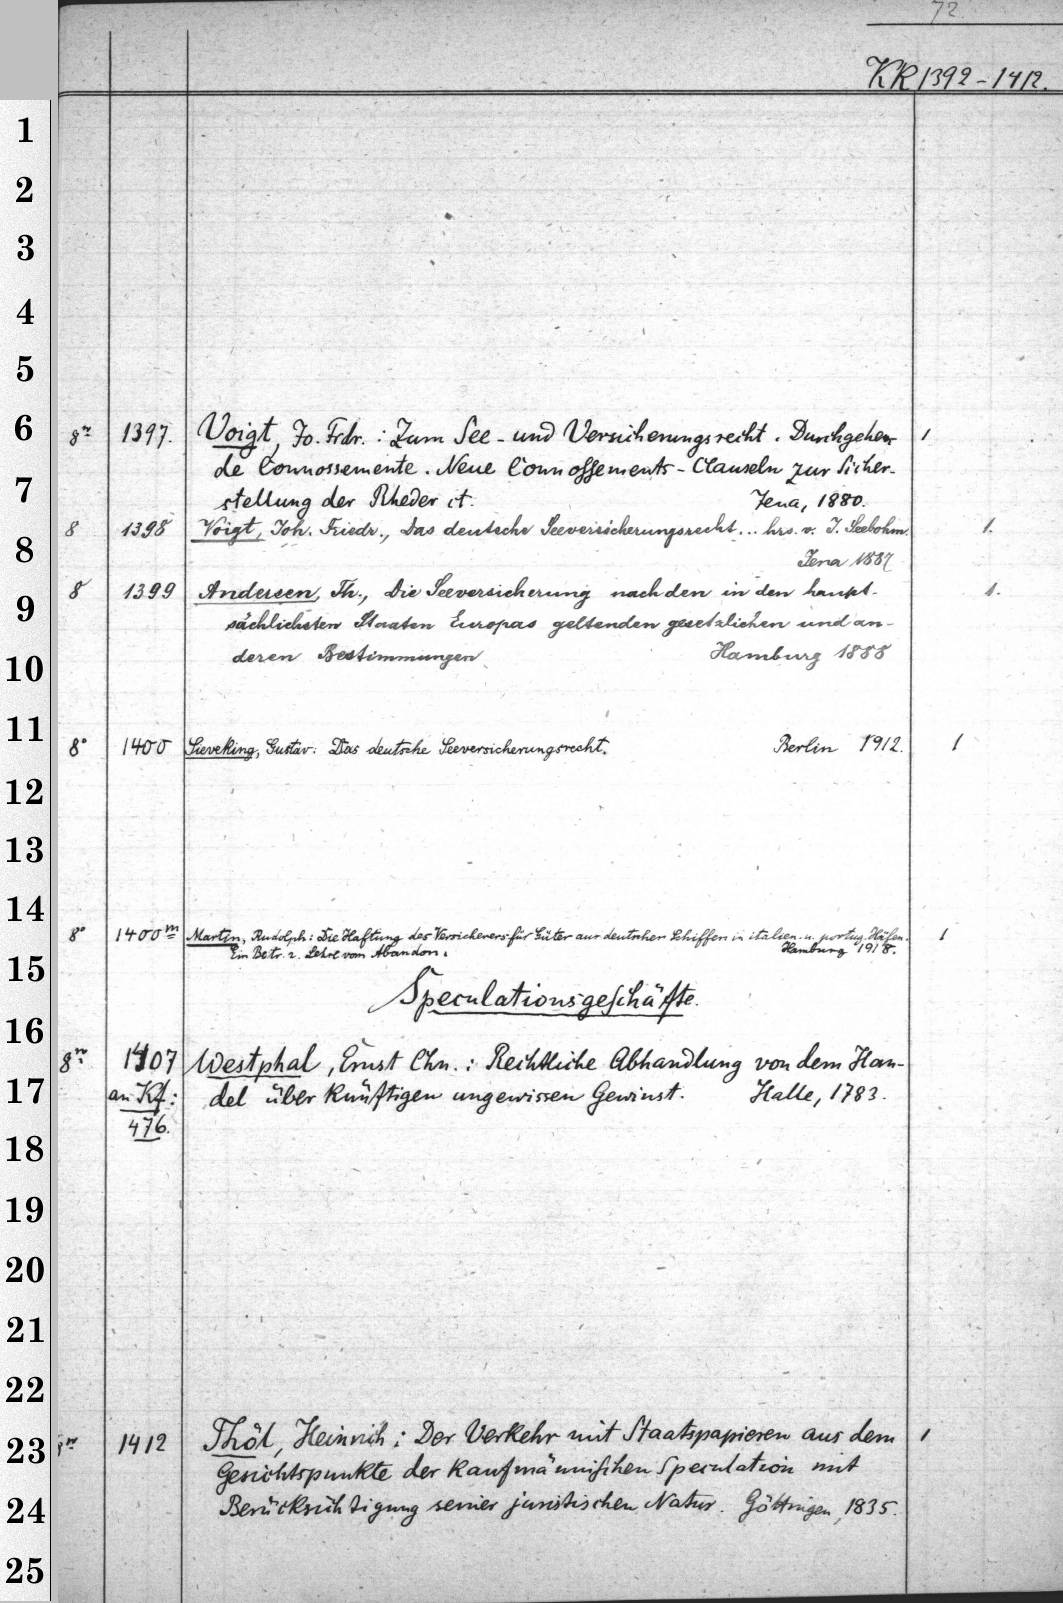 72
KR 1392-1412.
1
2
3
4
5
6 8º 1397. Voigt, Jo. Frdr. : Zum See- und Versicherungsrecht. Durchgehen- 1
de Connossemente. Neue Connossements-Clauseln zur Sicher-
7 stellung der Rheder et. Jena, 1880.
8 1398 Voigt, Joh. Friedr., Das deutsche Seeversicherungsrecht... hrs. v. J. Seebohm. 1.
8 Jena 1887
9 8 1399 Andersen, Th., Die Seeversicherung nach den in den haupt- 1.
sächlichsten Staaten Europas geltenden gesetzlichen und an-
10 deren Bestimmungen Hamburg 1888
11 8° 1400 Sieveking, Gustav: Das deutsche Seeversicherungsrecht. Berlin 1912. 1
12
13
14 8° 1400m Martin, Rudolph: Die Haftung des Versicherers für Güter auf deutschen Schiffen in italien. u. portug. Häfen. 1
Ein Betr. z. Lehre vom Abandon. Hamburg 1918.
15 Speculationsgeschäfte.
16 8º 1407 Westphal, Ernst Chn. : Rechtliche Abhandlung von dem Han-
17 an Kf: del über künftigen ungewissen Gewinst. Halle, 1783.
476.
18
19
20
21
22
23 1412 Thöl, Heinrich : Der Verkehr mit Staatspapieren aus dem 1
Gesichtspunkte der kaufmännischen Speculation mit
24 Berücksichtigung seiner juristischen Natur. Göttingen, 1835.
25